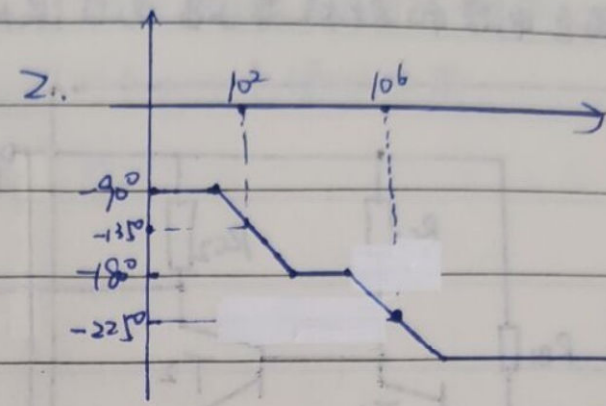 2.
10² 10⁶
-90°
-135°
-180°
-225°